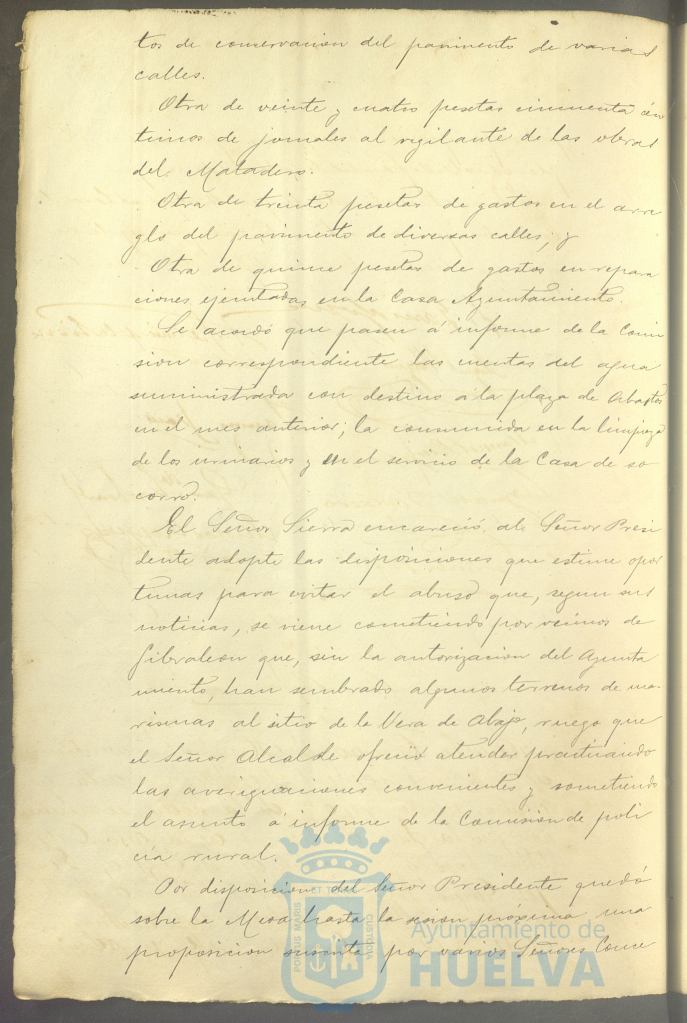 tos de conservacion del pavimento de varias
calles.
Otra de veinte y cuatro pesetas cincuenta cén
timos de jornales al vigilante de las obras
del Matadero.
Otra de treinta pesetas de gastos en el arre
glo del pavimento de diversas calles; y
Otra de quince pesetas de gastos en repara
ciones ejecutadas en la Casa Ayuntamiento.
Se acordó que pasen á informe de la Comi
sion correspondiente las cuentas del agua
suministrada con destino a la plaza de Abastos
en el mes anterior; la consumida en la limpieza
de los urinarios y en el servicio de la Casa de so
corro.
El Señor Sierra encareció al Señor Presi
dente adopte las disposiciones que estime opor
tunas para evitar el abuso que, segun sus
noticias, se viene cometiendo por vecinos de
Gibraleon que, sin la autorizacion del Ayunta
miento, han sembrado algunos terrenos de ma
rismas al sitio de la Vera de Abajo, ruego que
el Señor Alcalde ofreció atender practicando
las averiguaciones convenientes y sometiendo
el asunto á informe de la Comision de poli
cía rural.
Por disposicion del Señor Presidente quedó
sobre la Mesa hasta la sesion próxima, una
proposicion suscrita por varios Señores Conce
PORTUS MARIS ET TERRAE CUSTODIA
Ayuntamiento de
HUELVA